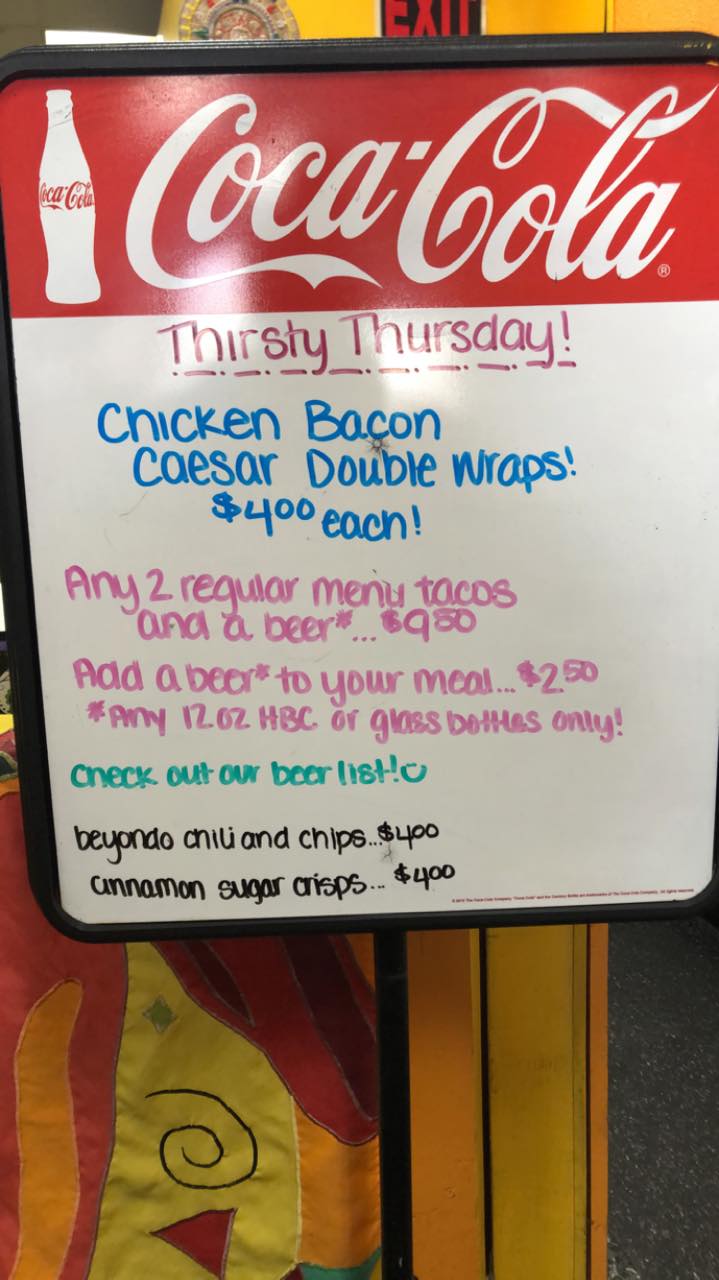 EXIT
Coca-Cola
Coca-Cola®
Thirsty Thursday!
Chicken Bacon
Caesar Double Wraps!
$4.00 each!
Any 2 regular menu tacos
and a beer*... $9.50
Add a beer* to your meal... $2.50
*Any 12 oz HBC or glass bottles only!
Check out our beer list!
beyondo chili and chips...$4.00
cinnamon sugar crisps... $4.00